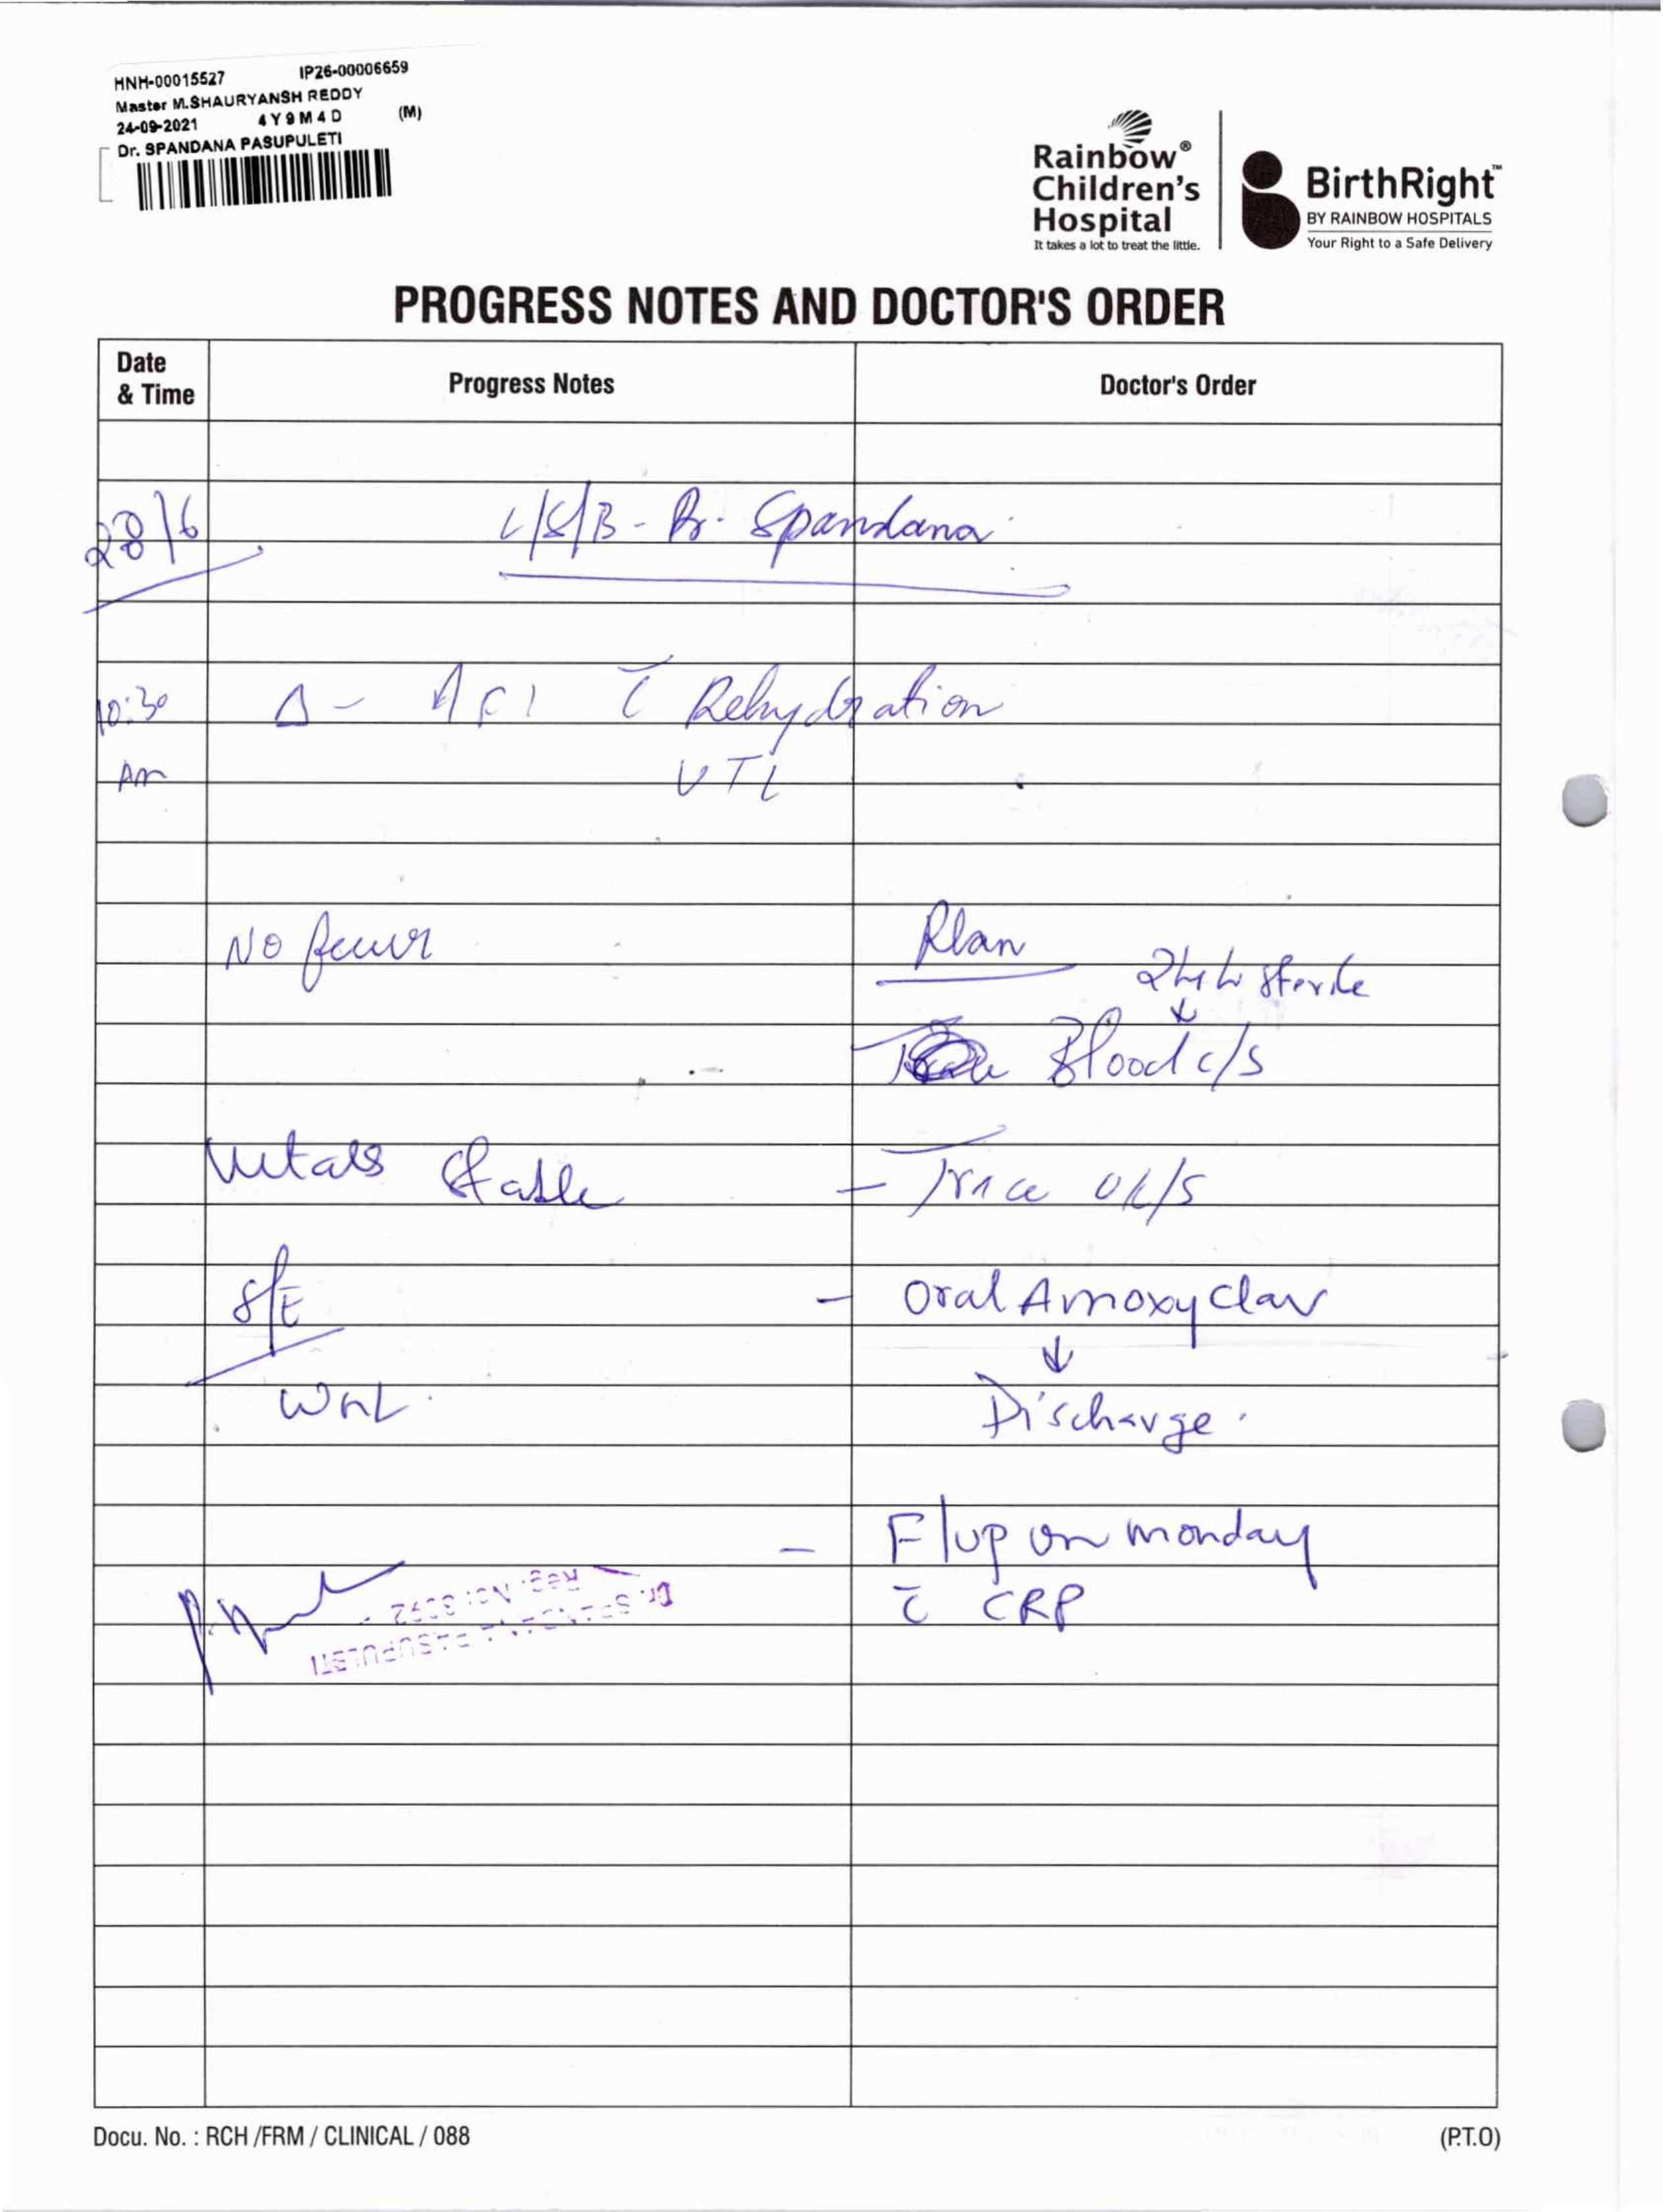 HNH-00015527 IP26-00006659
Master M.SHAURYANSH REDDY
24-09-2021 4Y9M4D (M)
Dr. SPANDANA PASUPULETI
Rainbow® Children's Hospital
It takes a lot to treat the little.
BirthRight™
BY RAINBOW HOSPITALS
Your Right to a Safe Delivery
PROGRESS NOTES AND DOCTOR'S ORDER
Date & Time Progress Notes Doctor's Order
28/6 /S/B - Dr. Spandana
10:30 Am
Δ - AFI c̄ Rehydration
UTI
No fever
Plan
24h sterile
↓
Blood c/s
Vitals Stable
- Trace U c/s
S/E
- Oral Amoxyclav
↓
WNL.
Discharge.
- F/up on monday
c̄ CRP
Dr. SPANDANA PASUPULETI
Reg. No:
Docu. No. : RCH /FRM / CLINICAL / 088 (P.T.O)